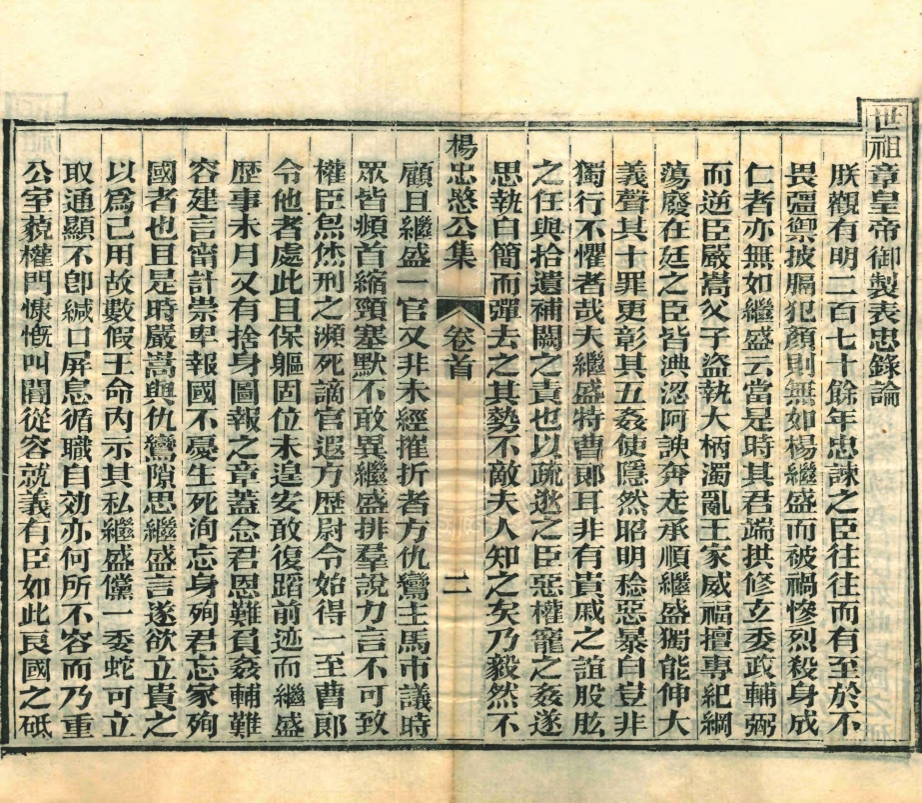 世祖章皇帝御製表忠錄論
朕觀有明二百七十餘年忠諫之臣往往而有至於不
畏彊禦披膈犯顏則無如楊繼盛而破禍慘烈殺身成
仁者亦無如繼盛云當是時其君端拱修玄委政輔弼
而逆臣嚴嵩父子盜執大柄濁亂王家威福擅專紀綱
蕩廢在廷之臣皆淟涊阿諛奔走承順繼盛獨能伸大
義聲其十罪更彰其五姦使隱然昭明稔惡暴白豈非
獨行不懼者哉夫繼盛特曹郎耳非有貴戚之誼股肱
之任與拾遺補闕之責也以疏逖之臣惡權寵之姦遂
思執白簡而彈去之其勢不敵夫人知之矣乃毅然不
楊忠愍公集
卷首
二
顧且繼盛一官又非未經摧折者方仇鸞主馬市議時
眾皆頫首縮頸塞默不敢異繼盛排羣說力言不可致
權臣炰烋刑之瀕死謫官遐方歷尉令始得一至曹郎
令他者處此且保軀固位未遑安敢復蹈前迹而繼盛
歷事未月又有捨身圖報之章蓋念君恩難負姦輔難
容建言甯計崇卑報國不憂生死洵忘身殉君忘家殉
國者也且是時嚴嵩與仇鸞隙思繼盛言遂欲立貴之
以爲己用故數假王命內示其私繼盛儻一委蛇可立
取通顯不卽緘口屏息循職自効亦何所不容而乃重
公室藐權門慷慨叫閽從容就義有臣如此良國之砥